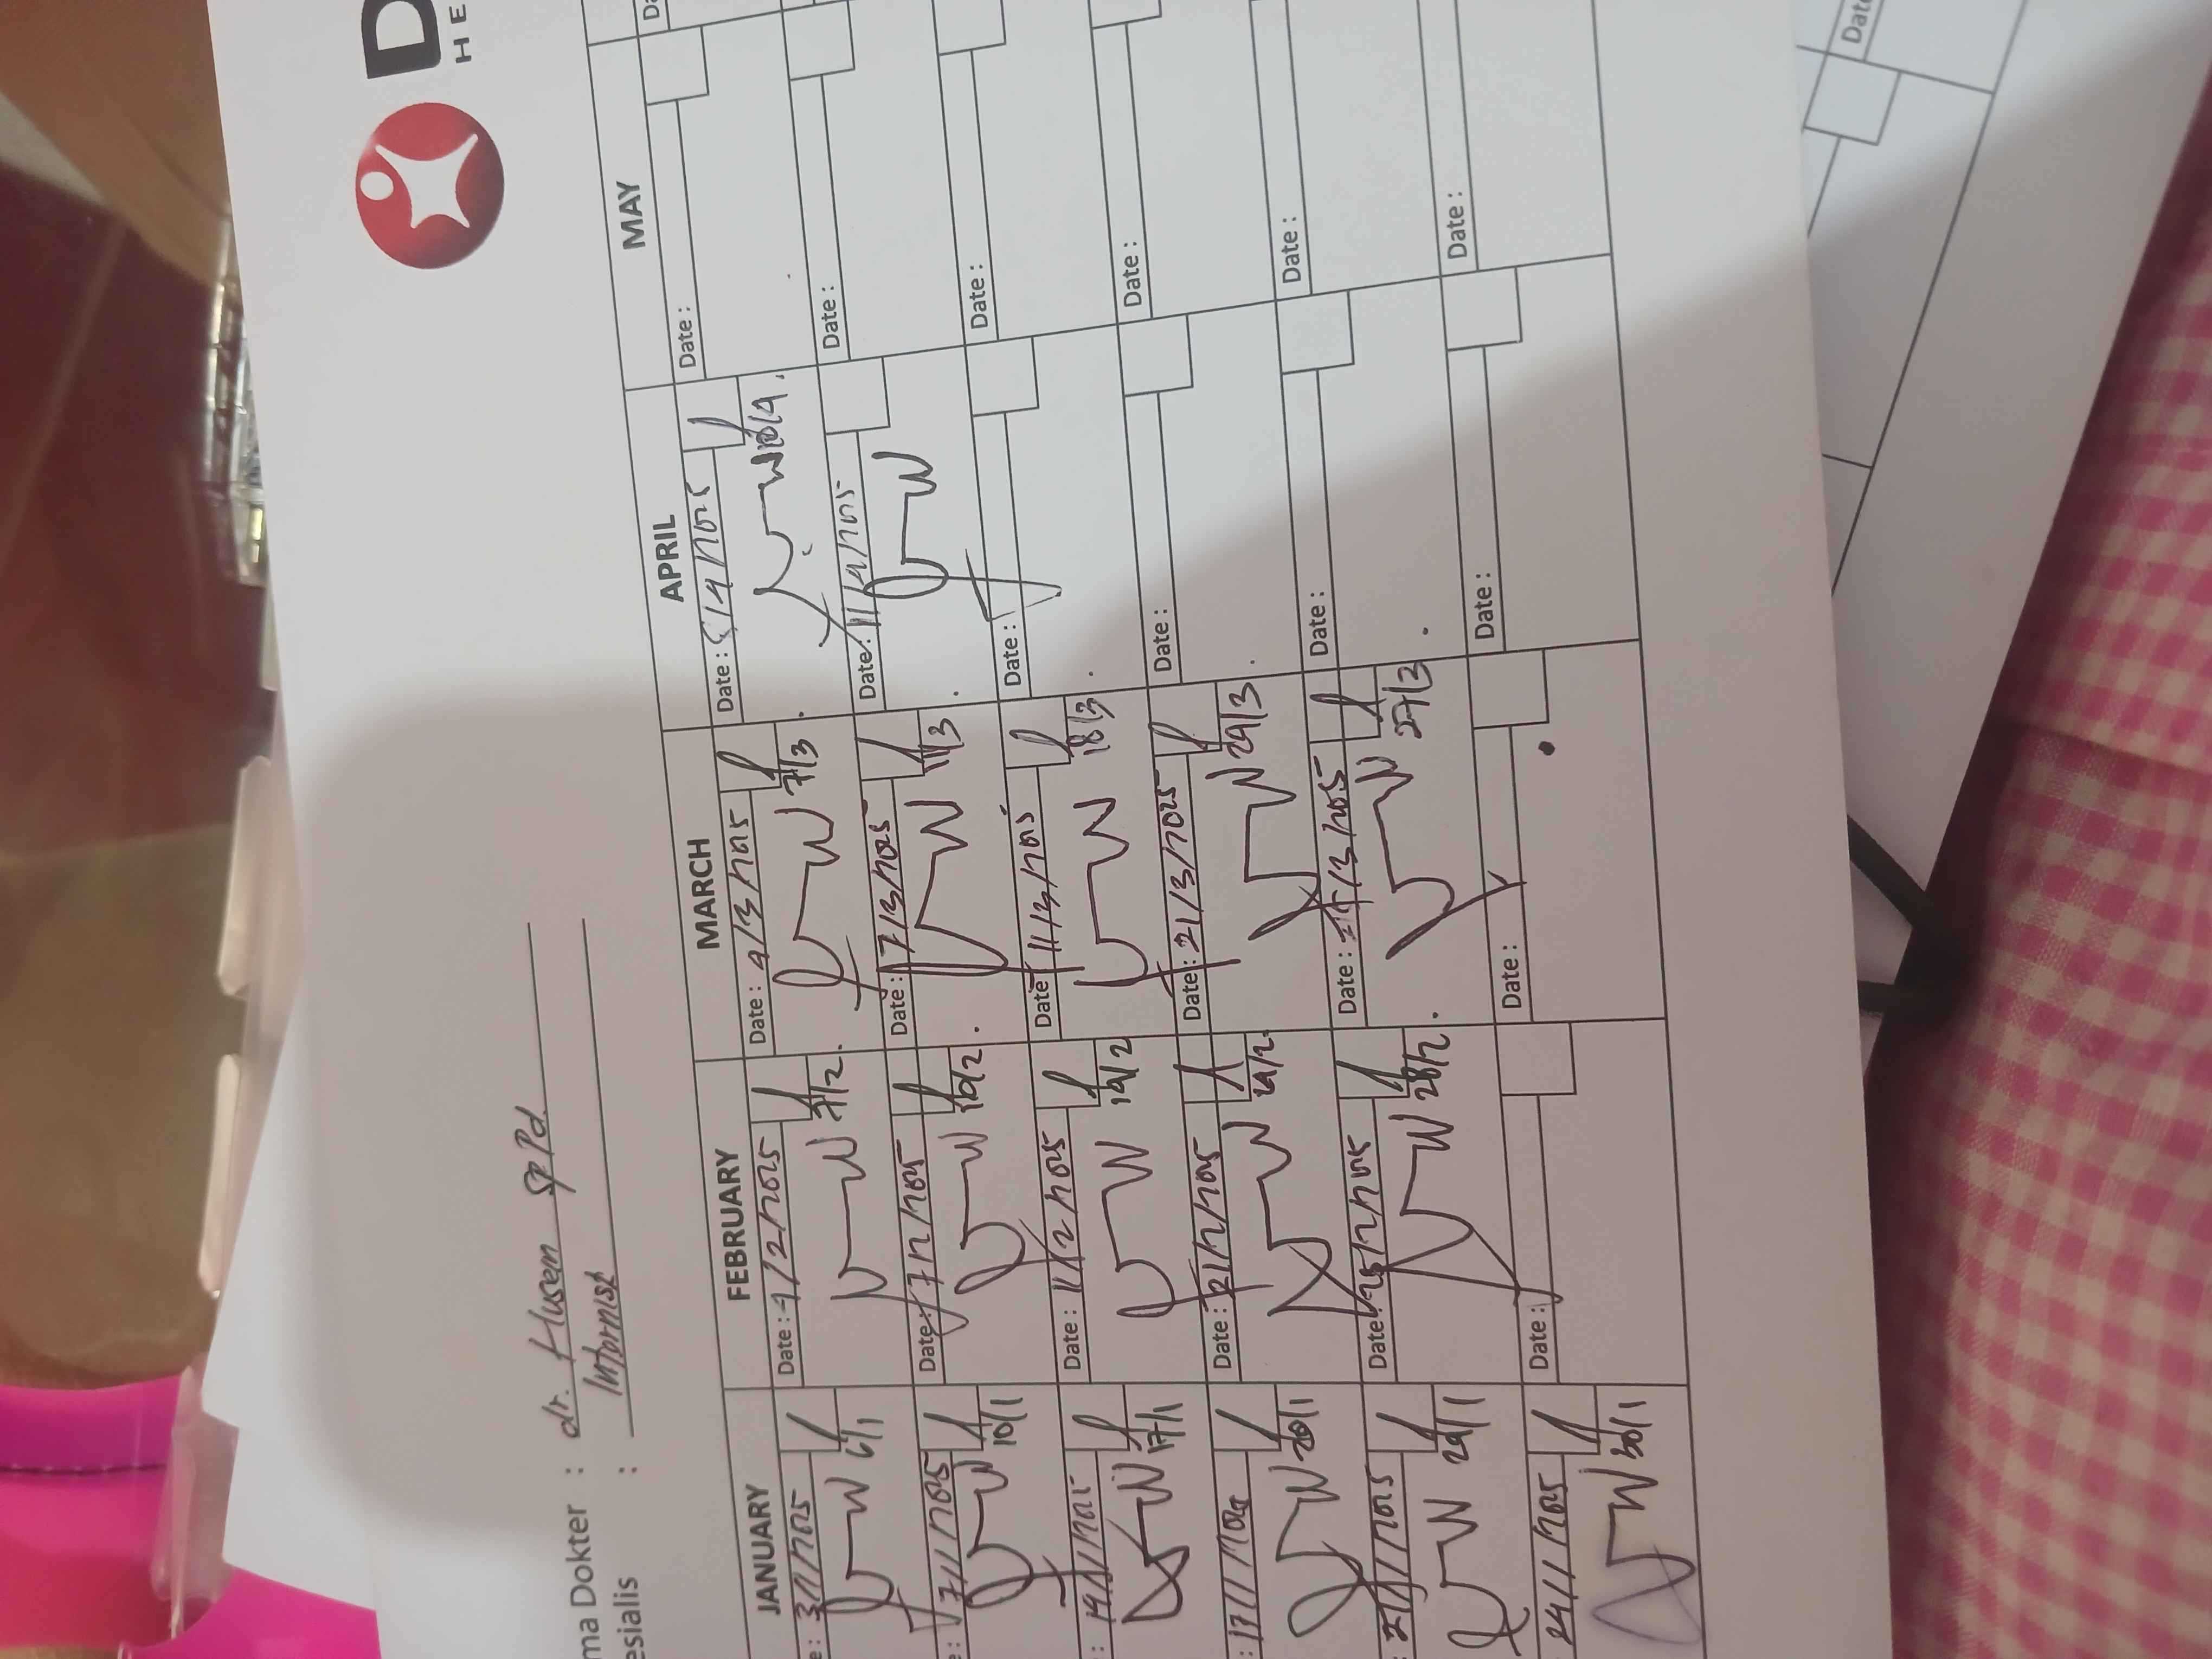 D
HE
ma Dokter : dr. Husen SpPd
esialis : Internist
JANUARY FEBRUARY MARCH APRIL MAY
e: 3/1/2025 Date: 4/2/2025 Date: 4/3/2025 Date: 8/4/2025 Date: Da
6/1 7/2. 7/3
e: 7/1/2025 Date: 7/2/2025 Date: 7/3/2025 Date: 11/4/2025 Date:
10/1 10/2 11/3
: 14/1/2025 Date: 11/2/2025 Date: 11/3/2025 Date: Date:
17/1 14/2 18/3
: 17/1/2025 Date: 21/2/2025 Date: 21/3/2025 Date: Date:
20/1 24/2 24/3
: 21/1/2025 Date: 25/2/2025 Date: 25/3/2025 Date: Date:
24/1 28/2 27/3
: 24/1/2025 Date: Date: Date: Date:
30/1
Date